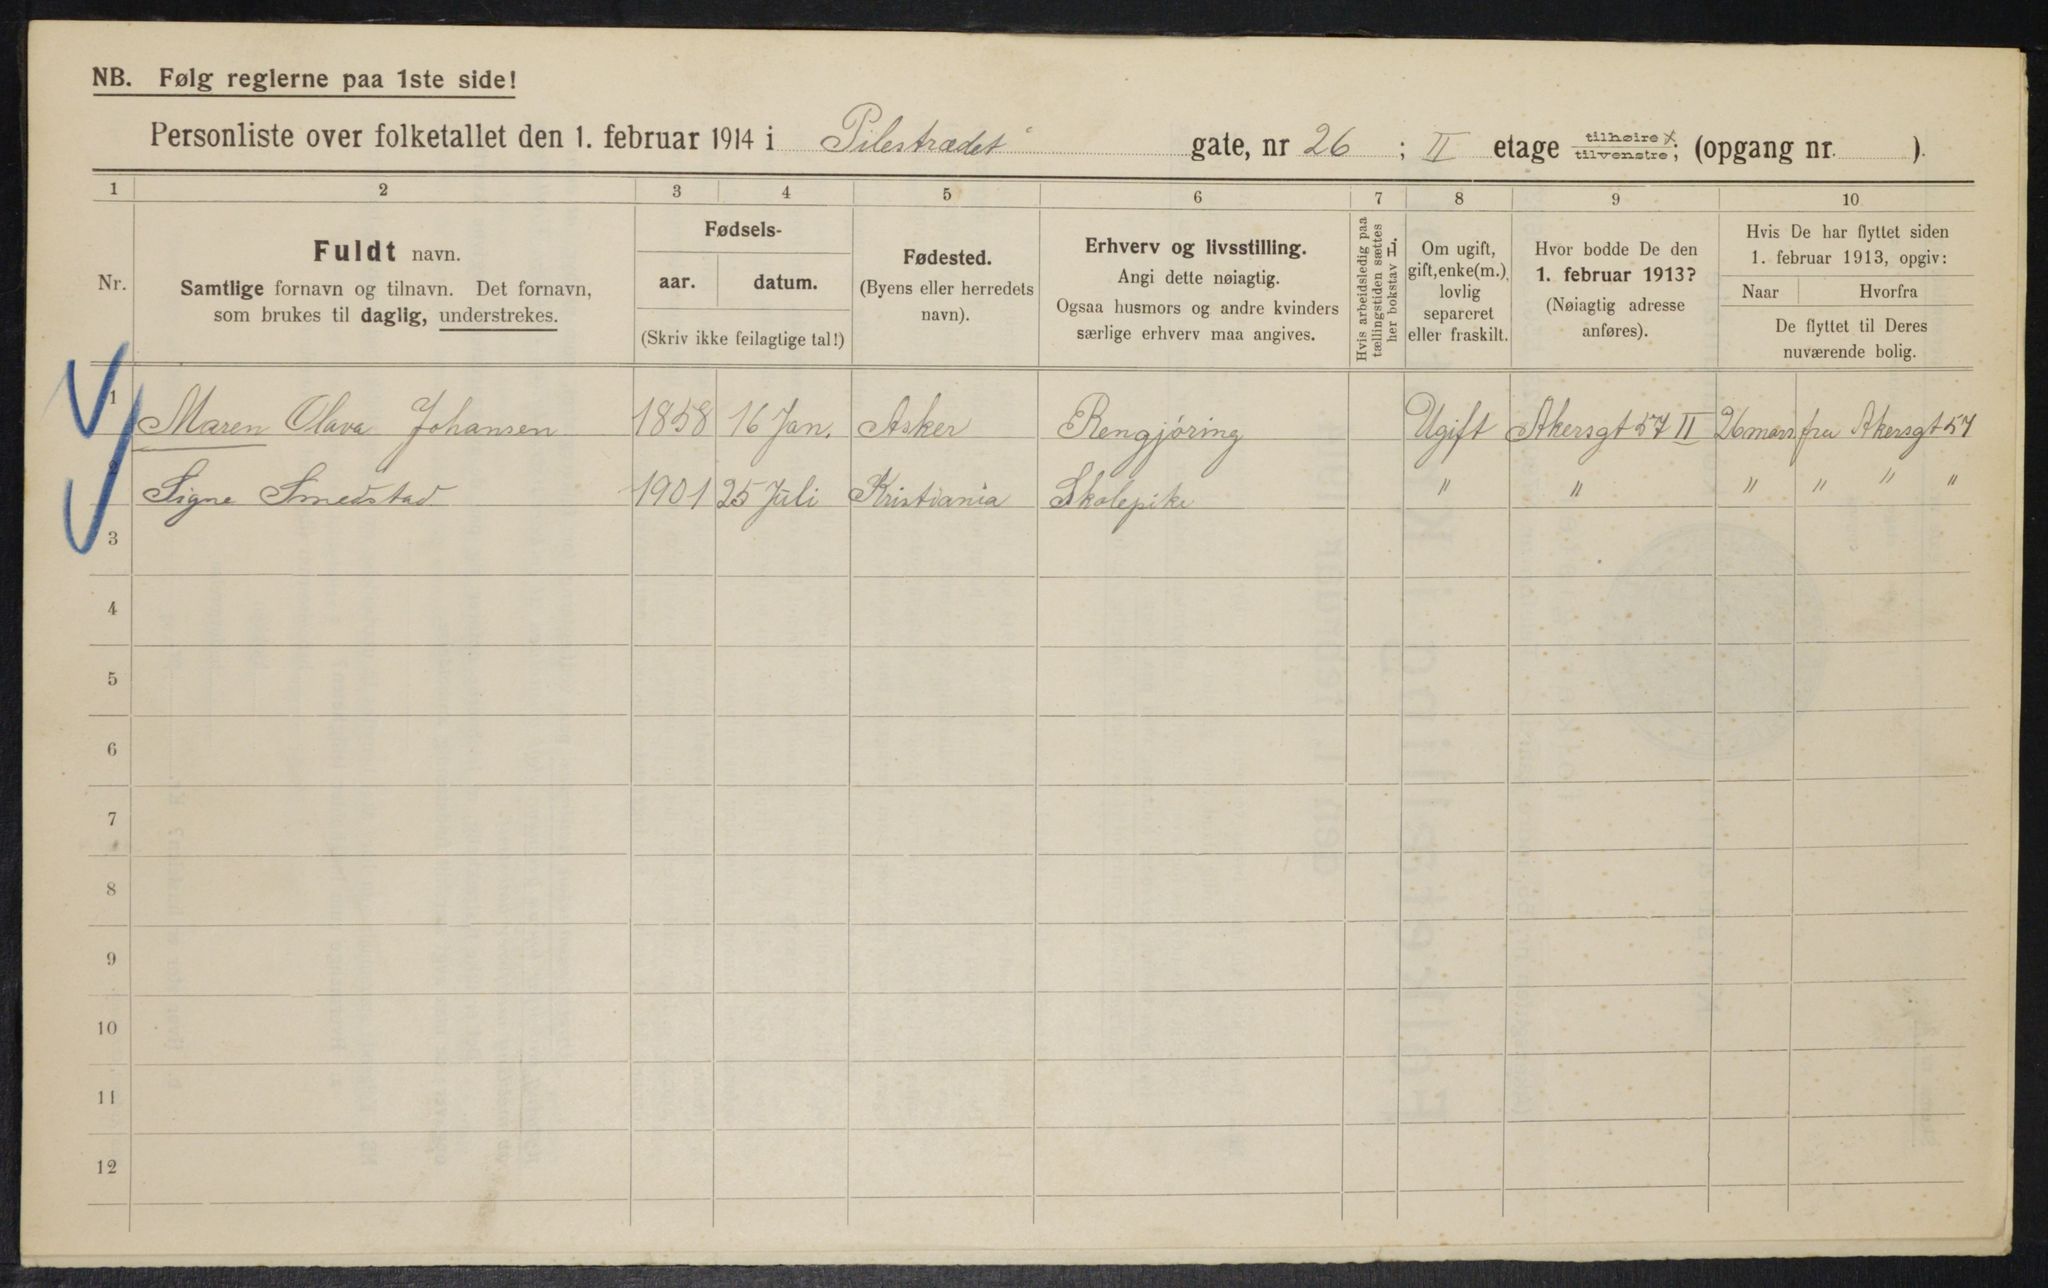 NB. Følg reglerne paa 1ste side!
Personliste over folketallet den 1. februar 1914 i Pilestrædet gate, nr 26 ; II etage tilhøire x / tilvenstre ; (opgang nr. ).
1 2 3 4 5 6 7 8 9 10
Nr.
Fuldt navn.
Samtlige fornavn og tilnavn. Det fornavn,
som brukes til daglig, understrekes.
Fødsels-
aar. datum.
(Skriv ikke feilagtige tal!)
Fødested.
(Byens eller herredets
navn).
Erhverv og livsstilling.
Angi dette nøiagtig.
Ogsaa husmors og andre kvinders
særlige erhverv maa angives.
Hvis arbeidsledig paa
tællingstiden sættes
her bokstav L.
Om ugift,
gift, enke(m.),
lovlig
separeret
eller fraskilt.
Hvor bodde De den
1. februar 1913?
(Nøiagtig adresse
anføres).
Hvis De har flyttet siden
1. februar 1913, opgiv:
Naar Hvorfra
De flyttet til Deres
nuværende bolig.
1 Maren Olava Johansen 1858 16 Jan. Asker Rengjøring Ugift Akersgt 57 II 26 mars fra Akersgt 57
2 Signe Smedstad 1901 25 Juli Kristiania Skolepike " " " " " "
3
4
5
6
7
8
9
10
11
12